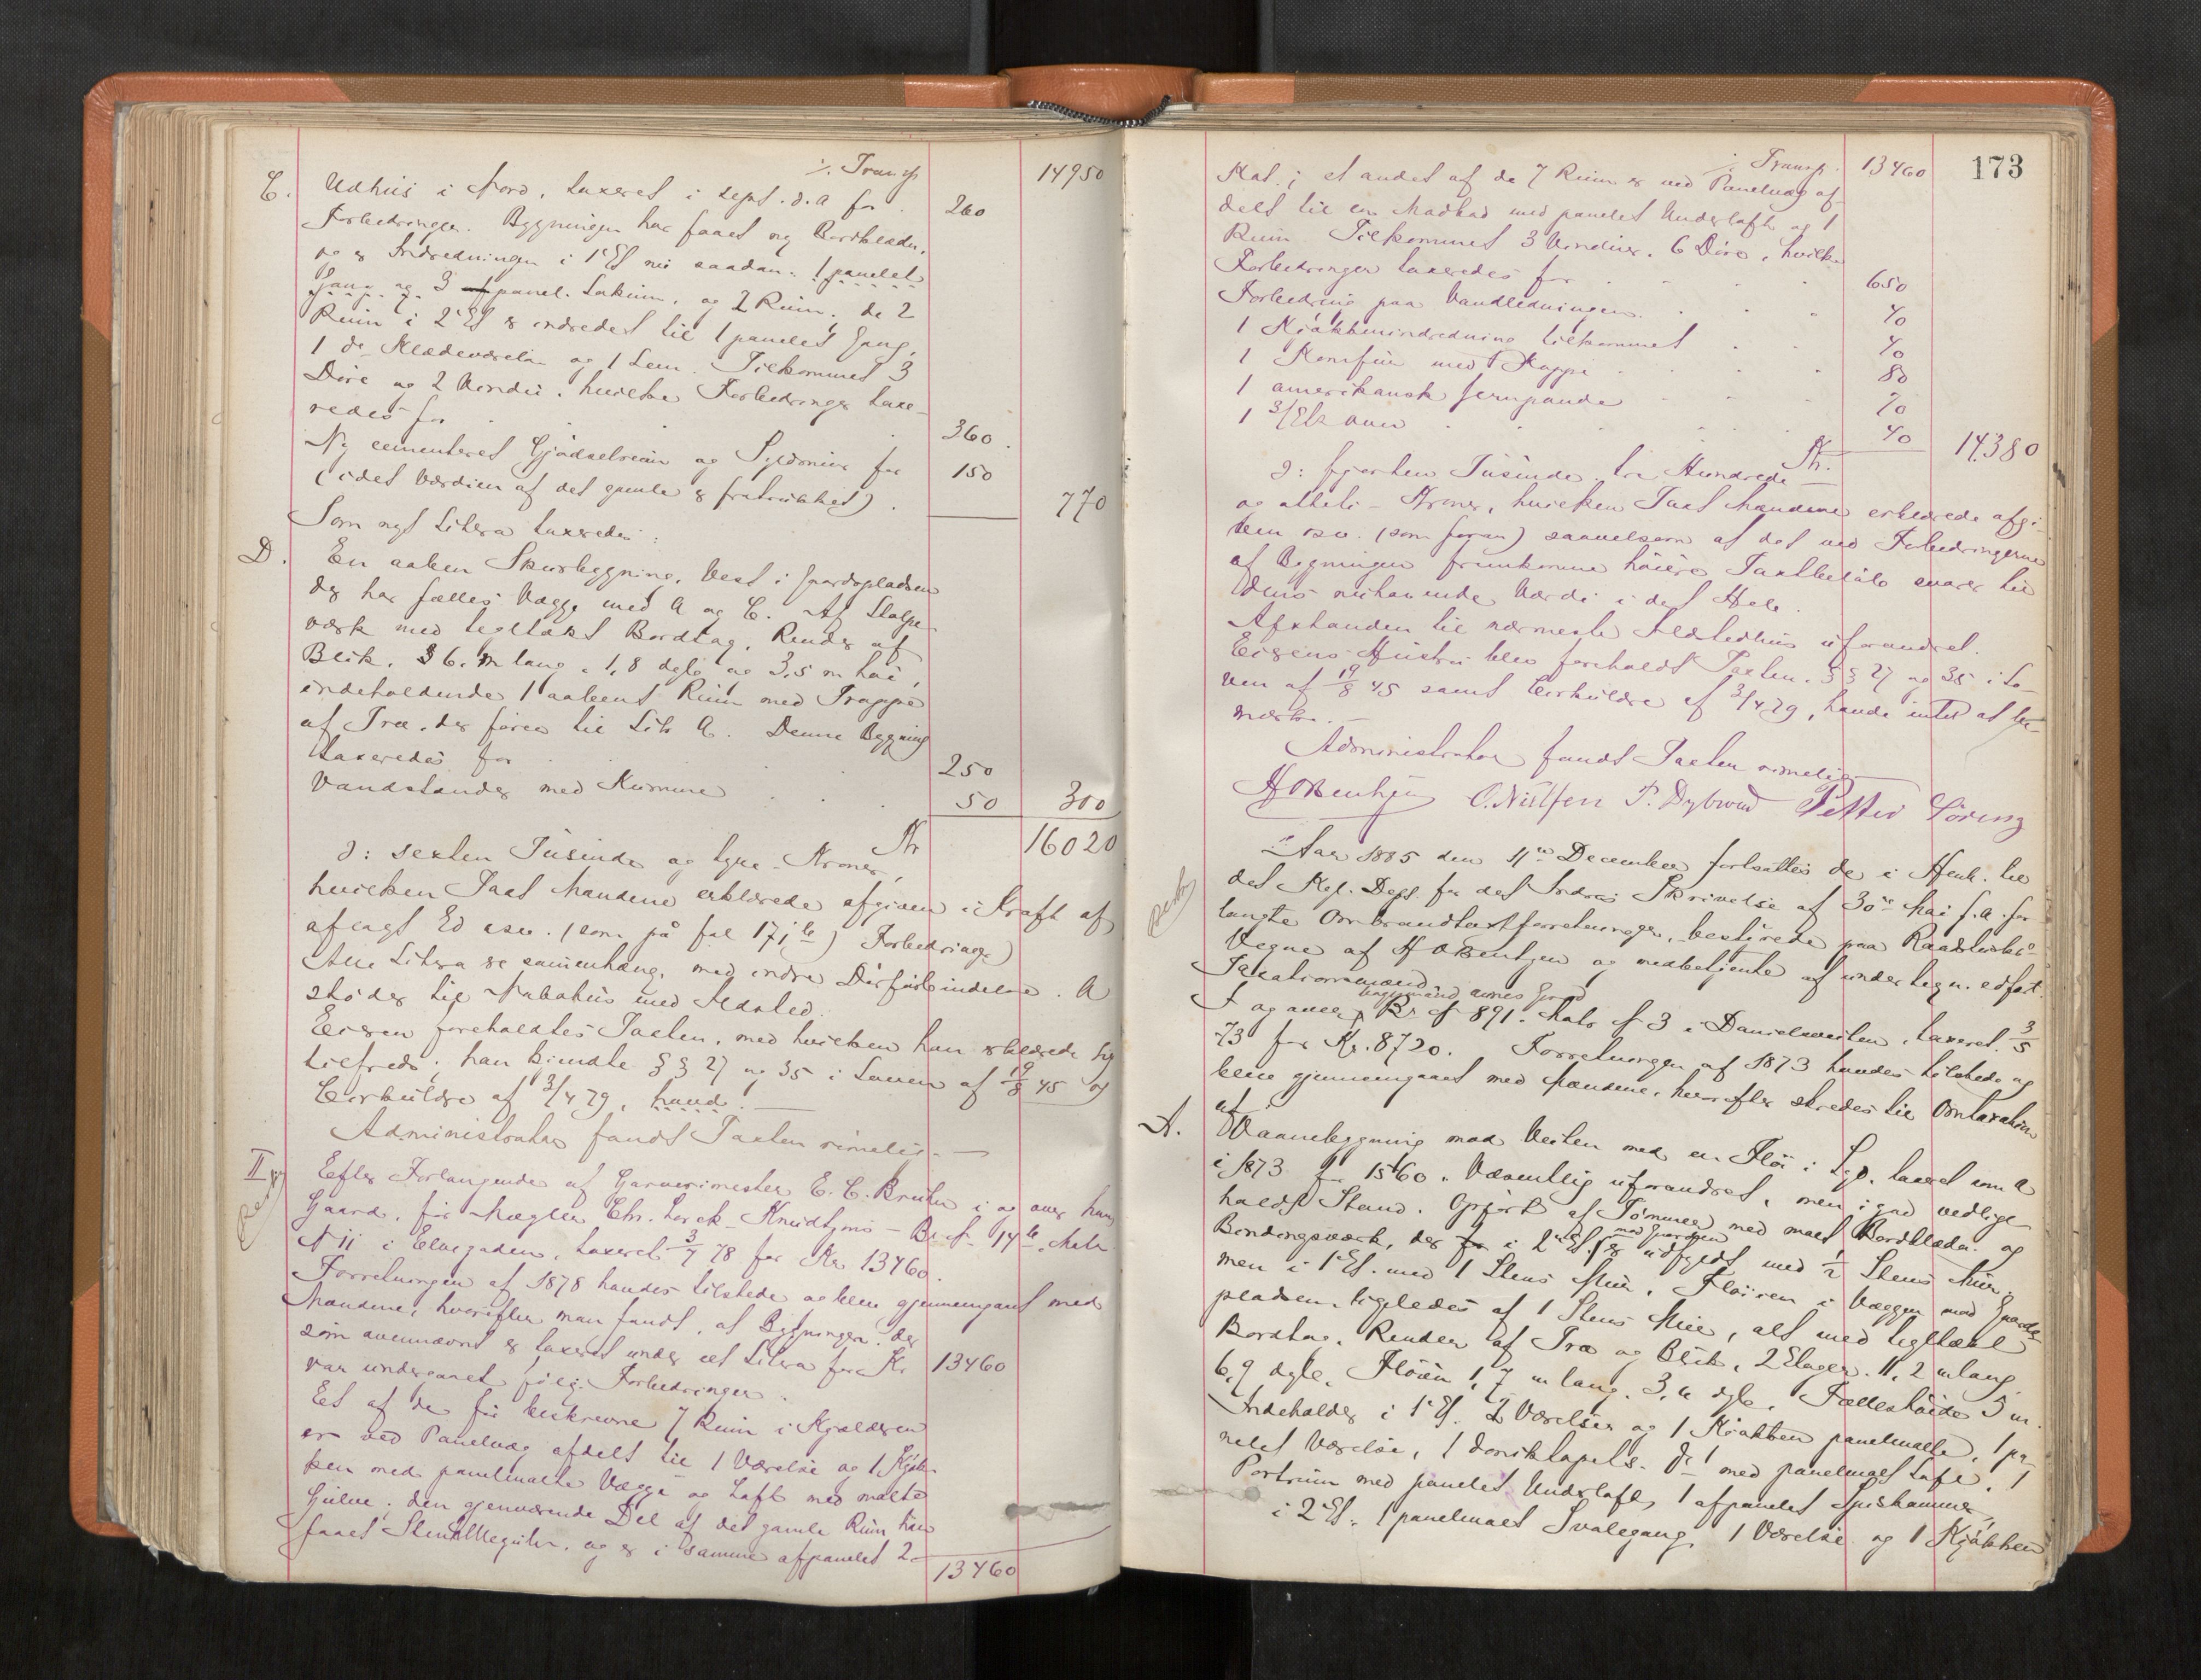 ٪ Transp 14950
C. Udhus i Nord, taxeret i sept. d. A for 260
Forbedringer. Bygningen har faaet ny Bordklædn.
og er Indredningen i 1 Et nu saadan: 1 panelet
Gang og 3 panel. Lokum, og 2 Rum, de 2
Rum i 2 Et er indredet til 1 panelet Gang,
1 do Klædeværelse og 1 Lem. Tilkommet 3
Døre og 2 Vinduer. hvilke Forbedringer taxe-
redes for 360.
Ny cementeret Gjødselrum og for 150
(idet Værdien af det gamle er fratrukket). 770
Som nyt Litera taxeredes:
D. En aaben Skurbygning, Vest i Gaardspladsen
der har fælles Vægge med A og C. Af Stolpe-
værk med tegltækt Bordtag, Render af
Blik. 6. m lang. 1,8 dyb og 3,5 m høi,
indeholdende 1 aabent Rum med Trappe
af Træ, der fører til Litr A. Denne Bygning
taxeredes for 250
Vandstander med Kumme 50 300
Kr 16020
ɔ: sexten Tusinde og tyve Kroner,
hvilken Taxt Mændene erklærede afgiven i Kraft af
aflagt Ed osv. (som på fol 171 b) Forbedringer)
Alle Litera er sammenhæng. med indre Dørforbindelse. A
støder til Nabohus med Ildsted.
Eieren foreholdtes Taxten, med hvilken han erklærede sig
tilfreds; han kjendte § § 27 og 35 i Loven af 19/8 45 og
Cirkulære af 3/4 79, hvad.
Administrator fandt Taxten rimelig.
II Efter Forlangende af Garvermester E. C. Bruun i og over hans
Gaard, før Mægler Chr. Lorck Knudtzons - Br. № 14 b, Matr.
№ 11 i Elvegaden, taxeret 3/7 78 for Kr 13460.
Forretningen af 1878 havdes tilstede og blev gjennemgaaet med
Mændene, hvorefter man fandt, at Bygningen, der
som ovennævnt er taxeret under et Litera for Kr 13460
var undergaaet følg. Forbedringer.
Et af de før beskrevne 7 Rum i Kjælderen
er ved Panelvæg afdelt til 1 Værelse og 1 Kjøk-
ken med panelmalte Vægge og Loft med malte
Gulve; den gjenværende Del af det gamle Rum har
faaet Stenhellegulv, og er i samme afpanelet 2
13460
٪ Transp. 13460 173
Mat. i et andet af de 7 Rum er ved Panelvæg af-
delt til en Madbod med panelet Underloft og 1
Rum Tilkommet 3 Vinduer, 6 Døre, hvilke
Forbedringer taxeredes for 650
Forbedring paa Vandledningen 40
1 Kjøkkenindredning tilkommet 40
1 Komfur med Kappe 80
1 amerikansk Jernpande 70
1 3/Etz ovn 40 14380
Kr.
ɔ: fjorten Tusinde tre Hundrede
og otteti - Kroner, hvilken Taxt Mændene erklærede afgi-
ven osv. (som foran) saavelsom at det ved Forbedringerne
af Bygningen fremkomne høiere Taxtbeløb svarer til
dens nuhavende Værdi i det Hele.
Afstanden til nærmeste Ildstedhus uforandret.
Eierens Hustru blev foreholdt Taxten, § § 27 og 35 i Lo-
ven af 19/8 45 samt Cirkulære af 3/4 79, havde intet at be-
mærke.
Administrator fandt Taxten rimelig
O. Nielsen P. Dybwad Petter Søreng
Aar 1885 den 11te December fortsattes de i Henh. til
det Kgl. Dept. for det Indres Skrivelse af 30te Mai f. A. for-
langte Ombrandtaxtforretninger, bestyrede paa Raadstuens
Vegne af H. O. Bentzen og medbetjente af undertegn. edfæst.
Taxationsmænd
I og over Br № 891. Matr № 3 i Danielsveiten, taxeret 3/5
73 for Kr. 8720. Forretningen af 1873 havdes tilstede og
blev gjennemgaaet med Mændene, hvorefter skredes til Omtaxation
af
A. Vaanebygning mod Veiten med en Fløi i taxeret som A
i 1873 for 1560. Væsentlig uforandret, men i god vedlige-
holdt Stand. Opført af Tømmer med malt Bordklædn. og
Bindingsværk, der i 2 Et mod Gaarden er udfyldt med 1/2 Stens Mur,
men i 1 Et. med 1 Stens Mur, Fløien i Væggen mod Gaards-
pladsen ligeledes af 1 Stens Mur, alt med tegltækt
Bordtag, Render af Træ og Blik, 2 Etager. 11,2 m lang,
6,9 dyb. Fløien 1,7 m lang. 3,6 dyb. Fælleshøide 5 m.
Indeholder i 1 Et. 2 Værelser og 1 Kjøkken panelmalte, 1 pa-
nelet Værelse, 1 do med panelmalt Loft, 1
Portrum med panelet Underloft, 1 afpanelet Spiskammer,
i 2 Et. 1 panelmalt Svalegang, 1 Værelse og 1 Kjøkken